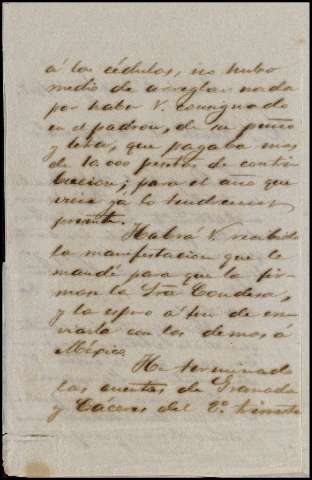 á las cédulas, no hubo
medio de arreglar nada
por haber V. consignado
en el padron, de su puño
y letra, que pagaba mas
de 10.000 pesetas de contri
bucion; para el año que
viene ya lo tendremos
presente.
Habrá V. recibido
la manifestacion que le
mandé para que la fir-
mara la Sra Condesa,
y la espero a fin de en
viarla con los demas á
México.
He terminado
las cuentas de Granada
y Cáceres del 2º trimestre